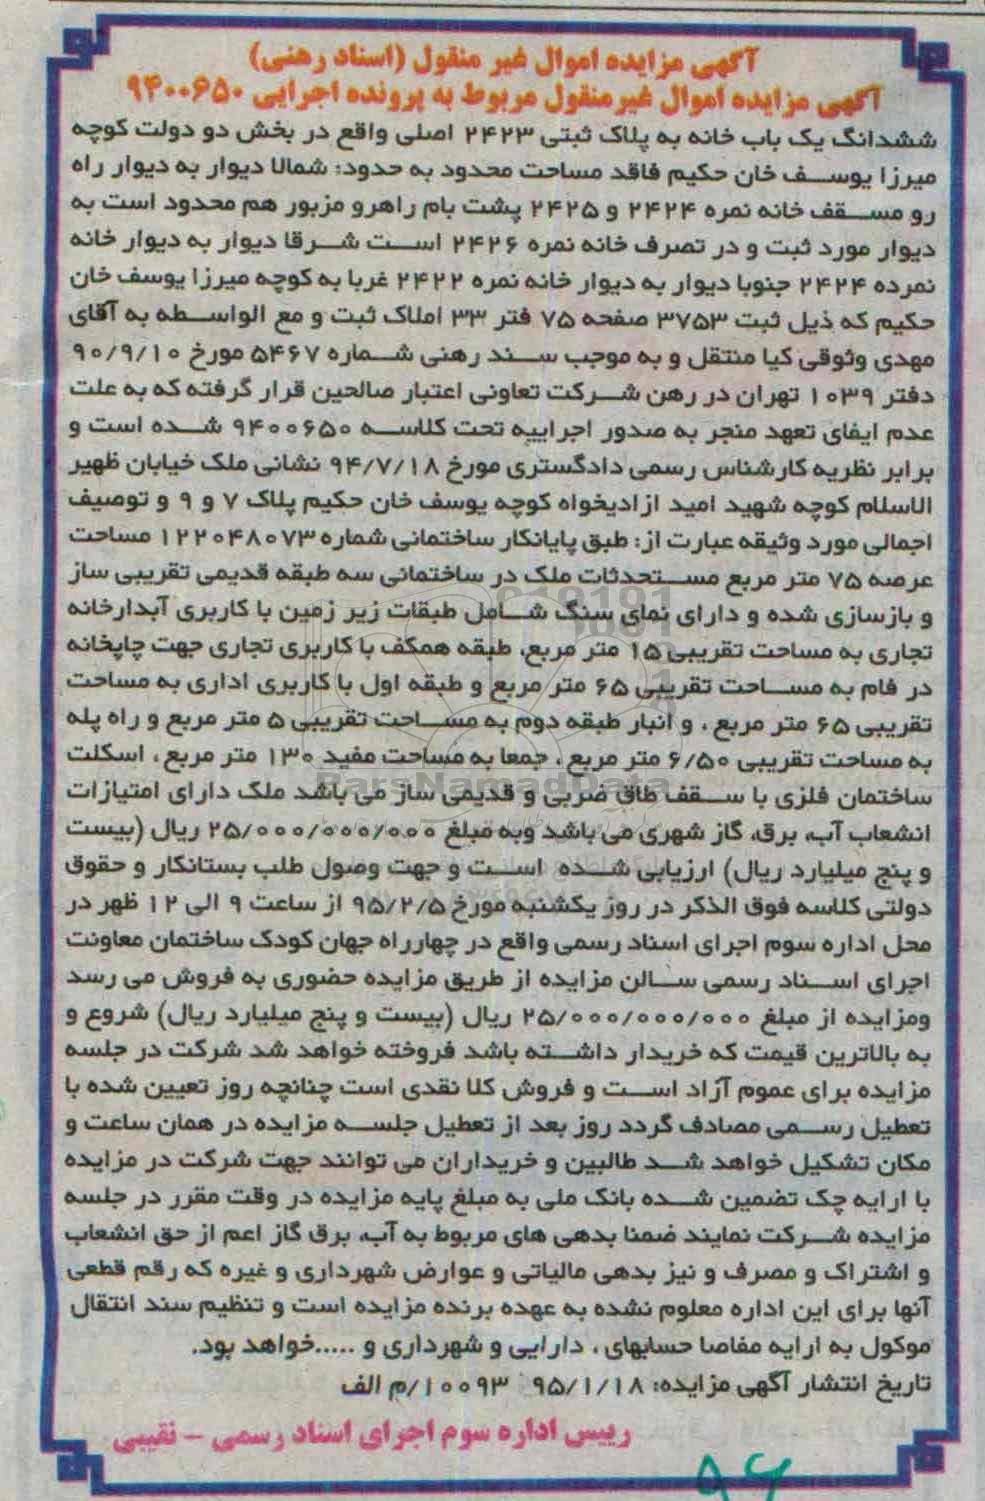 آگهی مزایده اموال غیر منقول (اسناد رهنی)
آگهی مزایده اموال غیرمنقول مربوط به پرونده اجرایی ۹۴۰۰۶۵۰
ششدانگ یک باب خانه به پلاک ثبتی ۲۴۲۳ اصلی واقع در بخش دو دولت کوچه
میرزا یوسف خان حکیم فاقد مساحت محدود به حدود: شمالا دیوار به دیوار راه
رو مسقف خانه نمره ۲۴۲۴ و ۲۴۲۵ پشت بام راهرو مزبور هم محدود است به
دیوار مورد ثبت و در تصرف خانه نمره ۲۴۲۶ است شرقا دیوار به دیوار خانه
نمرده ۲۴۲۴ جنوبا دیوار به دیوار خانه نمره ۲۴۲۲ غربا به کوچه میرزا یوسف خان
حکیم که ذیل ثبت ۳۷۵۳ صفحه ۷۵ فتر ۳۳ املاک ثبت و مع الواسطه به آقای
مهدی وثوقی کیا منتقل و به موجب سند رهنی شماره ۵۴۶۷ مورخ ۹۰/۹/۱۰
دفتر ۱۰۳۹ تهران در رهن شرکت تعاونی اعتبار صالحین قرار گرفته که به علت
عدم ایفای تعهد منجر به صدور اجراییه تحت کلاسه ۹۴۰۰۶۵۰ شده است و
برابر نظریه کارشناس رسمی دادگستری مورخ ۹۴/۷/۱۸ نشانی ملک خیابان ظهیر
الاسلام کوچه شهید امید ازادیخواه کوچه یوسف خان حکیم پلاک ۷ و ۹ و توصیف
اجمالی مورد وثیقه عبارت از: طبق پایانکار ساختمانی شماره ۱۲۲۰۴۸۰۷۳ مساحت
عرصه ۷۵ متر مربع مستحدثات ملک در ساختمانی سه طبقه قدیمی تقریبی ساز
و بازسازی شده و دارای نمای سنگ شامل طبقات زیر زمین با کاربری آبدارخانه
تجاری به مساحت تقریبی ۱۵ متر مربع، طبقه همکف با کاربری تجاری جهت چاپخانه
در فام به مساحت تقریبی ۶۵ متر مربع و طبقه اول با کاربری اداری به مساحت
تقریبی ۶۵ متر مربع ، و انبار طبقه دوم به مساحت تقریبی ۵ متر مربع و راه پله
به مساحت تقریبی ۶/۵۰ متر مربع ، جمعا به مساحت مفید ۱۳۰ متر مربع ، اسکلت
ساختمان فلزی با سقف طاق ضربی و قدیمی ساز می باشد ملک دارای امتیازات
انشعاب آب، برق، گاز شهری می باشد وبه مبلغ ۲۵/۰۰۰/۰۰۰/۰۰۰ ریال (بیست
و پنج میلیارد ریال) ارزیابی شده است و جهت وصول طلب بستانکار و حقوق
دولتی کلاسه فوق الذکر در روز یکشنبه مورخ ۹۵/۲/۵ از ساعت ۹ الی ۱۲ ظهر در
محل اداره سوم اجرای اسناد رسمی واقع در چهارراه جهان کودک ساختمان معاونت
اجرای اسناد رسمی سالن مزایده از طریق مزایده حضوری به فروش می رسد
ومزایده از مبلغ ۲۵/۰۰۰/۰۰۰/۰۰۰ ریال (بیست و پنج میلیارد ریال) شروع و
به بالاترین قیمت که خریدار داشته باشد فروخته خواهد شد شرکت در جلسه
مزایده برای عموم آزاد است و فروش کلا نقدی است چنانچه روز تعیین شده با
تعطیل رسمی مصادف گردد روز بعد از تعطیل جلسه مزایده در همان ساعت و
مکان تشکیل خواهد شد طالبین و خریداران می توانند جهت شرکت در مزایده
با ارایه چک تضمین شده بانک ملی به مبلغ پایه مزایده در وقت مقرر در جلسه
مزایده شرکت نمایند ضمنا بدهی های مربوط به آب، برق گاز اعم از حق انشعاب
و اشتراک و مصرف و نیز بدهی مالیاتی و عوارض شهرداری و غیره که رقم قطعی
آنها برای این اداره معلوم نشده به عهده برنده مزایده است و تنظیم سند انتقال
موکول به ارایه مفاصا حسابهای ، دارایی و شهرداری و .....خواهد بود.
تاریخ انتشار آگهی مزایده: ۹۵/۱/۱۸ ۱۰۰۹۳/م الف
رییس اداره سوم اجرای اسناد رسمی - نقیبی
ParsNamadData